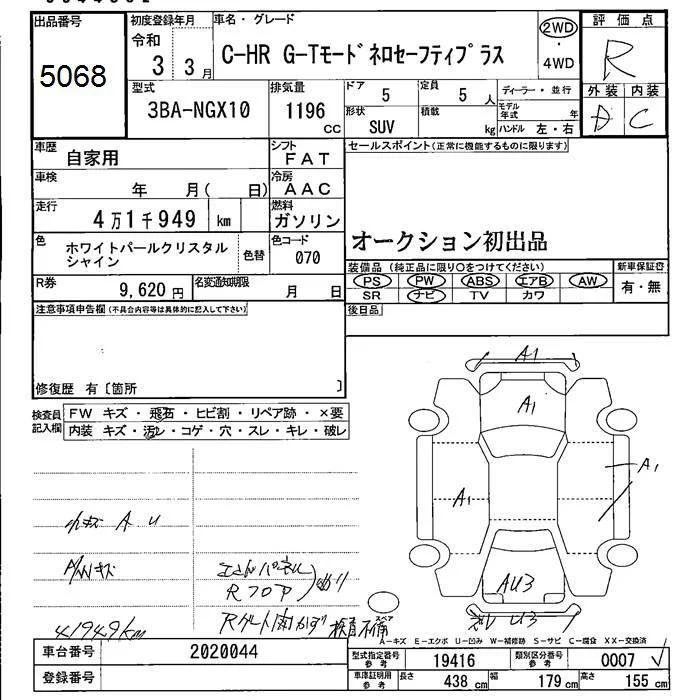 出品番号
5068
初度登録年月
令和
3 3月
車名・グレード
C-HR G-Tモードネロセーフティプラス
2WD
・
4WD
評価点
R
外装 内装
D C
型式
3BA-NGX10
排気量
1196
CC
ドア
5
定員
5 人
形状
SUV
積載
kg
ディーラー・並行
モデル年式 年
ハンドル 左・右
車歴
自家用
シフト
FAT
車検
年 月( 日)
冷房
AAC
走行
4万1千949 km
燃料
ガソリン
色
ホワイトパールクリスタル
シャイン
色替
色コード
070
R券
9,620円
名変通知期限
月 日
セールスポイント(正常に機能するものに限ります)
オークション初出品
装備品(純正品に限り○をつけてください)
PS PW ABS エアB AW
SR ナビ TV カワ
新車保証書
有・無
後日品
注意事項申告欄(不具合内容等は具体的に記入して下さい)
修復歴 有〔箇所 〕
検査員
記入欄
FW キズ・飛石・ヒビ割・リペア跡・×要
内装 キズ・汚レ・コゲ・穴・スレ・キレ・破レ
小キズ A U
A/Wキズ
41949km
Rフロア
A1
A1
A1
A1
AU3
U3
スペア
A-キズ E-エクボ U-凹み W-補修跡 S-サビ C-腐食 XX-交換済
車台番号
2020044
登録番号
型式指定番号
参考
19416
類別区分番号
参考
0007
車庫証明用
参考
長さ
438 cm
幅
179 cm
高さ
155 cm